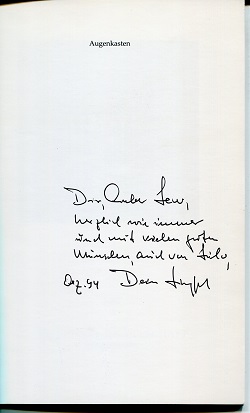 Augenkasten
Dir, lieber
herzlich wie immer
und mit vielen guten
Wünschen, auch von
Dez. 94 Dein